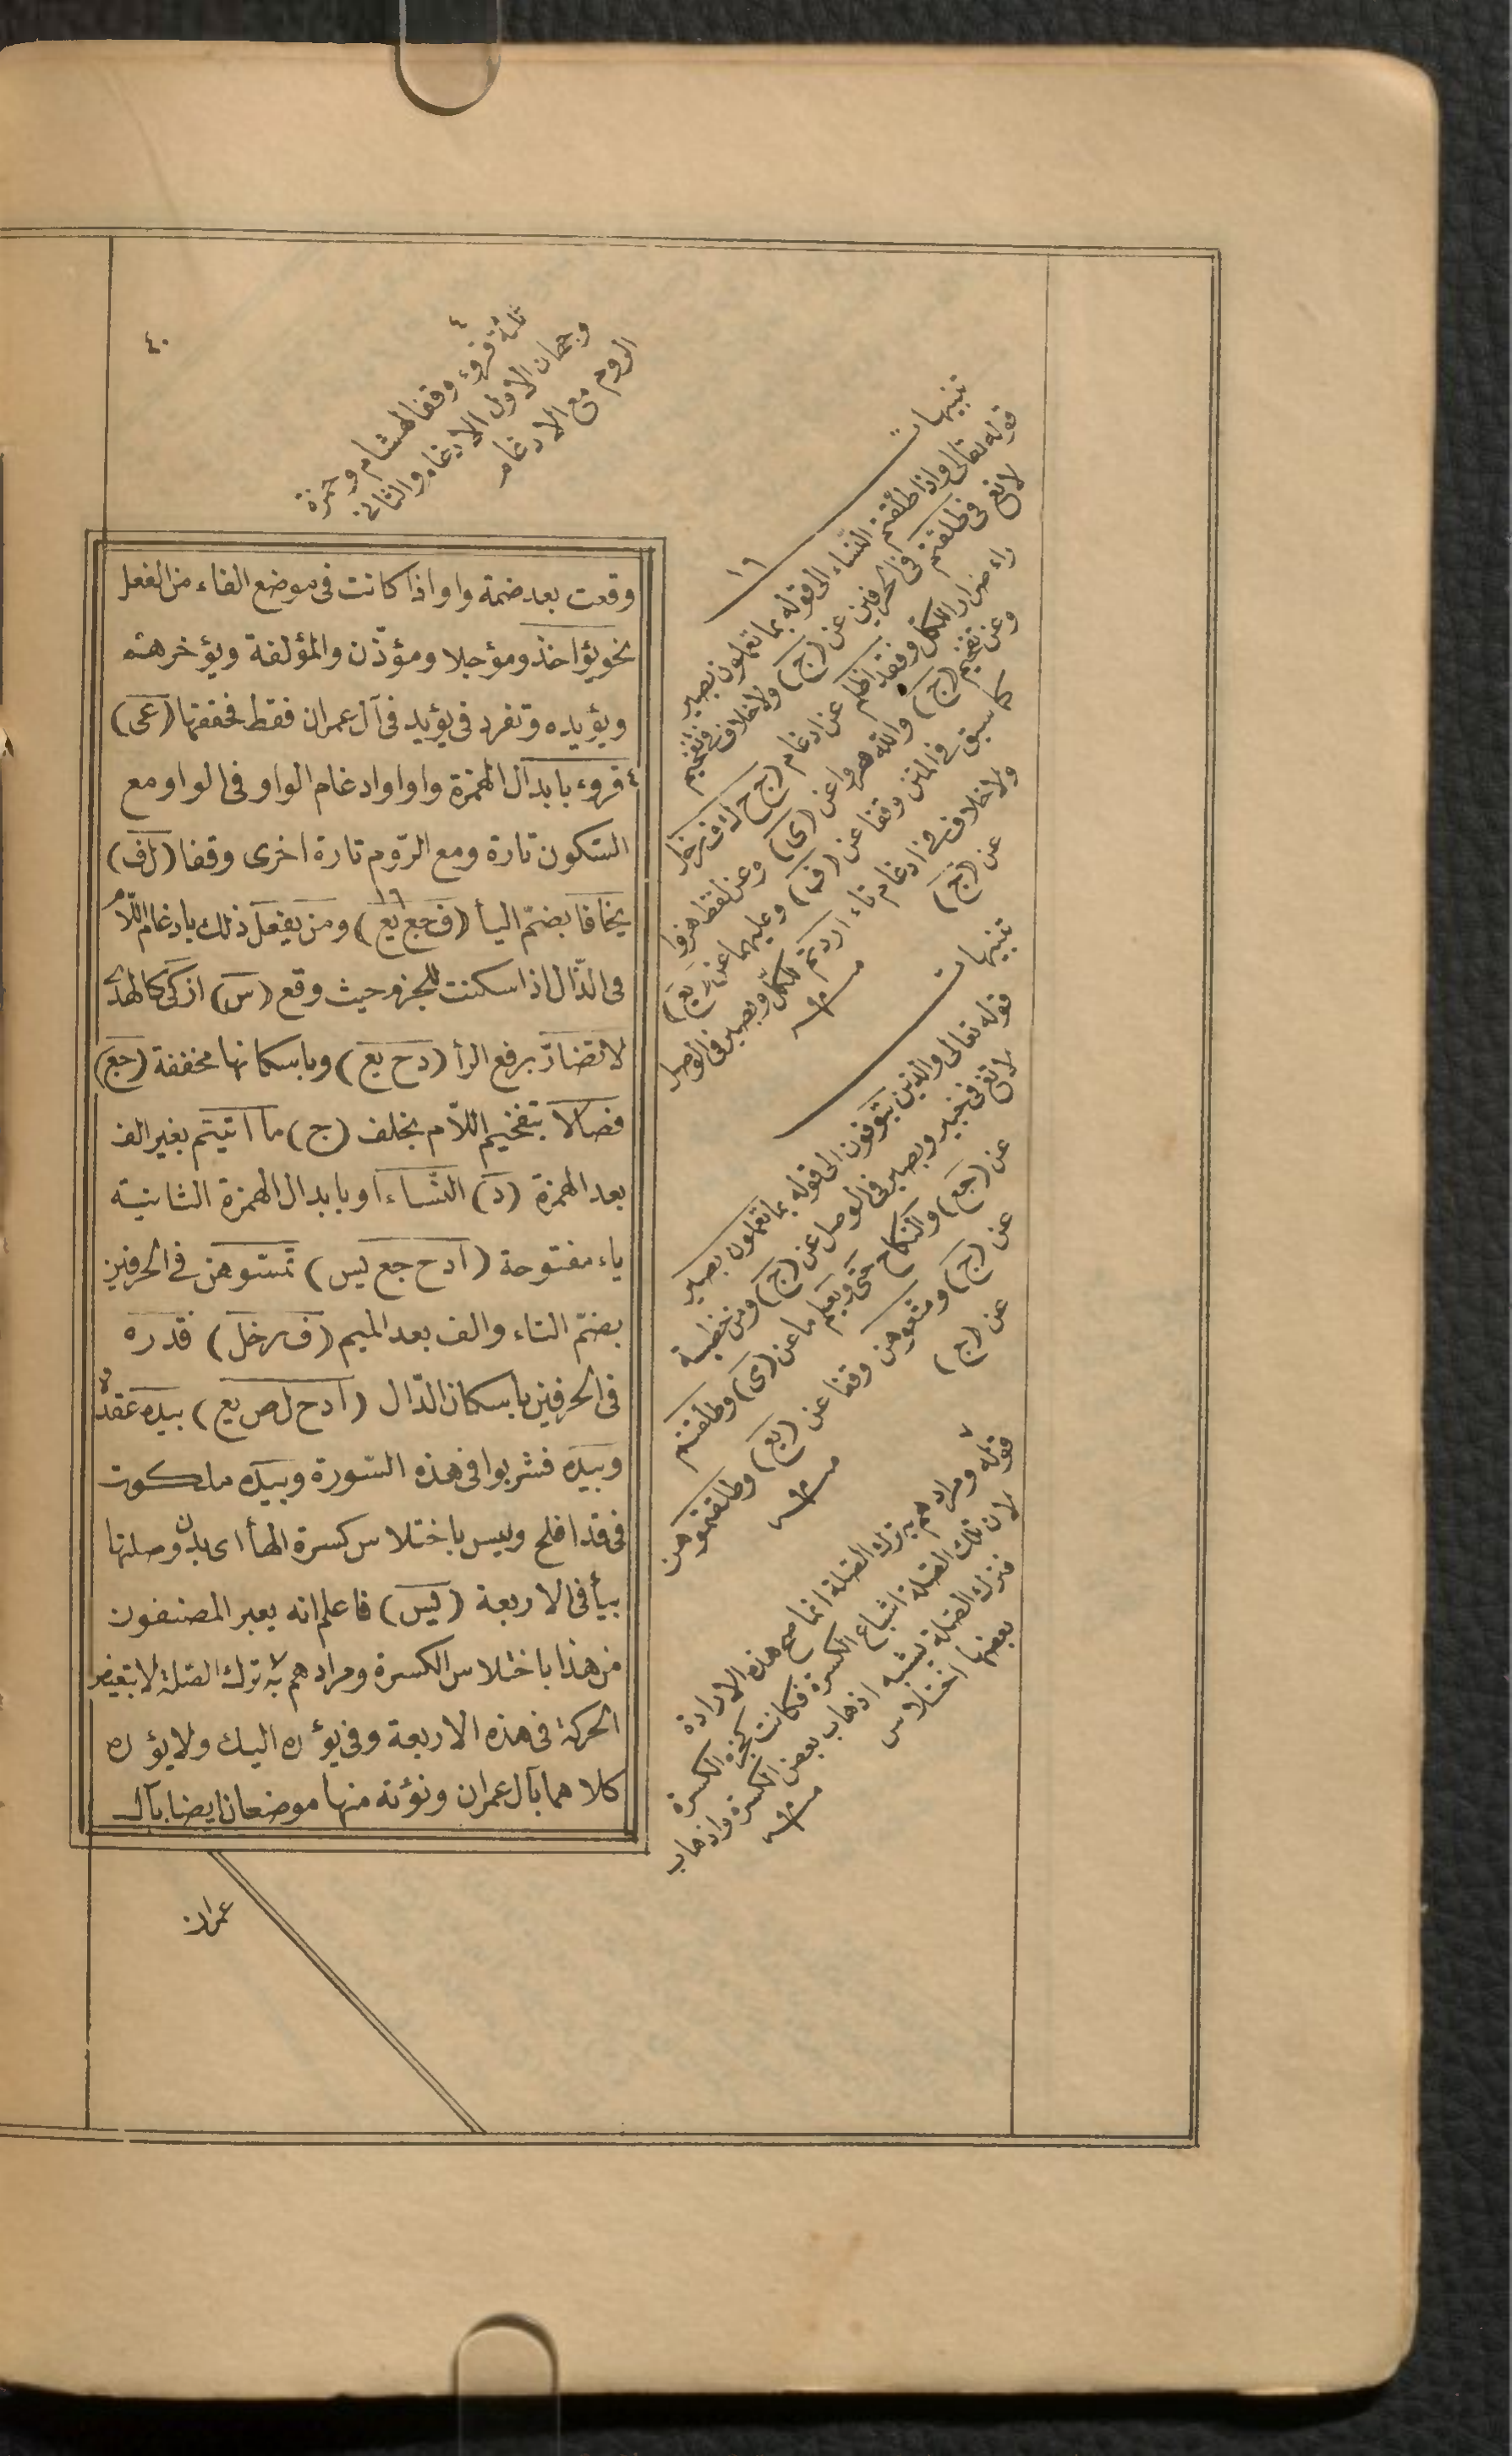 ٤٠
٤
ثلثة قروء وقفا لهشام وحمزة
وجهان الاول الادغام والثانى
الروم مع الادغام
وقعت بعد ضمة واو اذا كانت فى موضع الفاء من الفعل
نحو يؤاخذ ومؤجلا ومؤذّن والمؤلفة ويؤخرهم
ويؤيده وتفرد فى يؤيد فى آل عمران فقط فخففها (عى)
٤ قروء بابدال الهمزة واوا وادغام الواو فى الواو مع
السّكون تارة ومع الرّوم تارة اخرى وقفا (لف)
يخافا بضمّ اليأ (ف جع يع) ومن يفعل ذلك بادغام اللّام
فى الذّال اذا سكنت للجزم حيث وقع (س) ازكى كالهدى
لا تضارّ برفع الرأ (دح يع) وباسكانها مخففة (جع)
فصالا بتفخيم اللّام بخلف (ج) ما اتيتم بغير الف
بعد الهمزة (د) النّساء او بابدال الهمزة الثانية
ياء مفتوحة (ادح جع يس) تمسّوهن فى الحرفين
بضمّ التاء والف بعد الميم (ف رخل) قدره
فى الحرفين باسكان الدّال (ادح ل ص يع) بيده عقدة
وبيده فشربوا فى هذه السّورة وبيده ملكوت
فى قد افلح ويس باختلاس كسرة الهأ اى بدون صلتها
بيأ فى الاربعة (يس) فاعلم انه يعبر المصنفون
من هذا باختلاس الكسرة ومرادهم به ترك الصّلة لا تبعيض
الحركة فى هذه الاربعة وفى يؤده اليك ولا يؤده
كلاهما بآل عمران ونؤته منها موضعان ايضا بآل
عمران
تنبيهات
١٦
قوله تعالى واذا طلّقتم النّساء الى قوله بما تعملون بصير
لا تغ فى طلقتم فى الحرفين عن (ج) ولا خلاف فى تفخيم
راء ضرار للكل وفقد ظلم عن ادغام (ج ح ك ف رخل
وعن تفخيم (ج) والله هزوا عن (ى) وعن لفظ هزوا
كما سبق فى المتن وقفا عن (ف) وعليهما عن (يع)
ولا خلاف فى ادغام تاء اردتم للكلّ وبصير فى الوصل
عن (ج)
تنبيهات
قوله تعالى والذين يتوفون الى قوله بما تعملون بصير
لا تغ فى خبير وبصير فى الوصل عن (ج) ومن خطبة
عن (جع) والنكاح حتى ويعلم ما عن (ى) وطلقتم
عن (ج) ومتعوهن وقفا عن (يع) وطلقتموهن
عن (ج)
٧
قوله ومرادهم به ترك الصّلة انما صح هذه الارادة
لان تلك الصّلة اشباع الكسرة فكانت كجزء الكسرة
فترك الصّلة يشبه اذهاب بعض الكسرة واذهاب
بعضها اختلاس